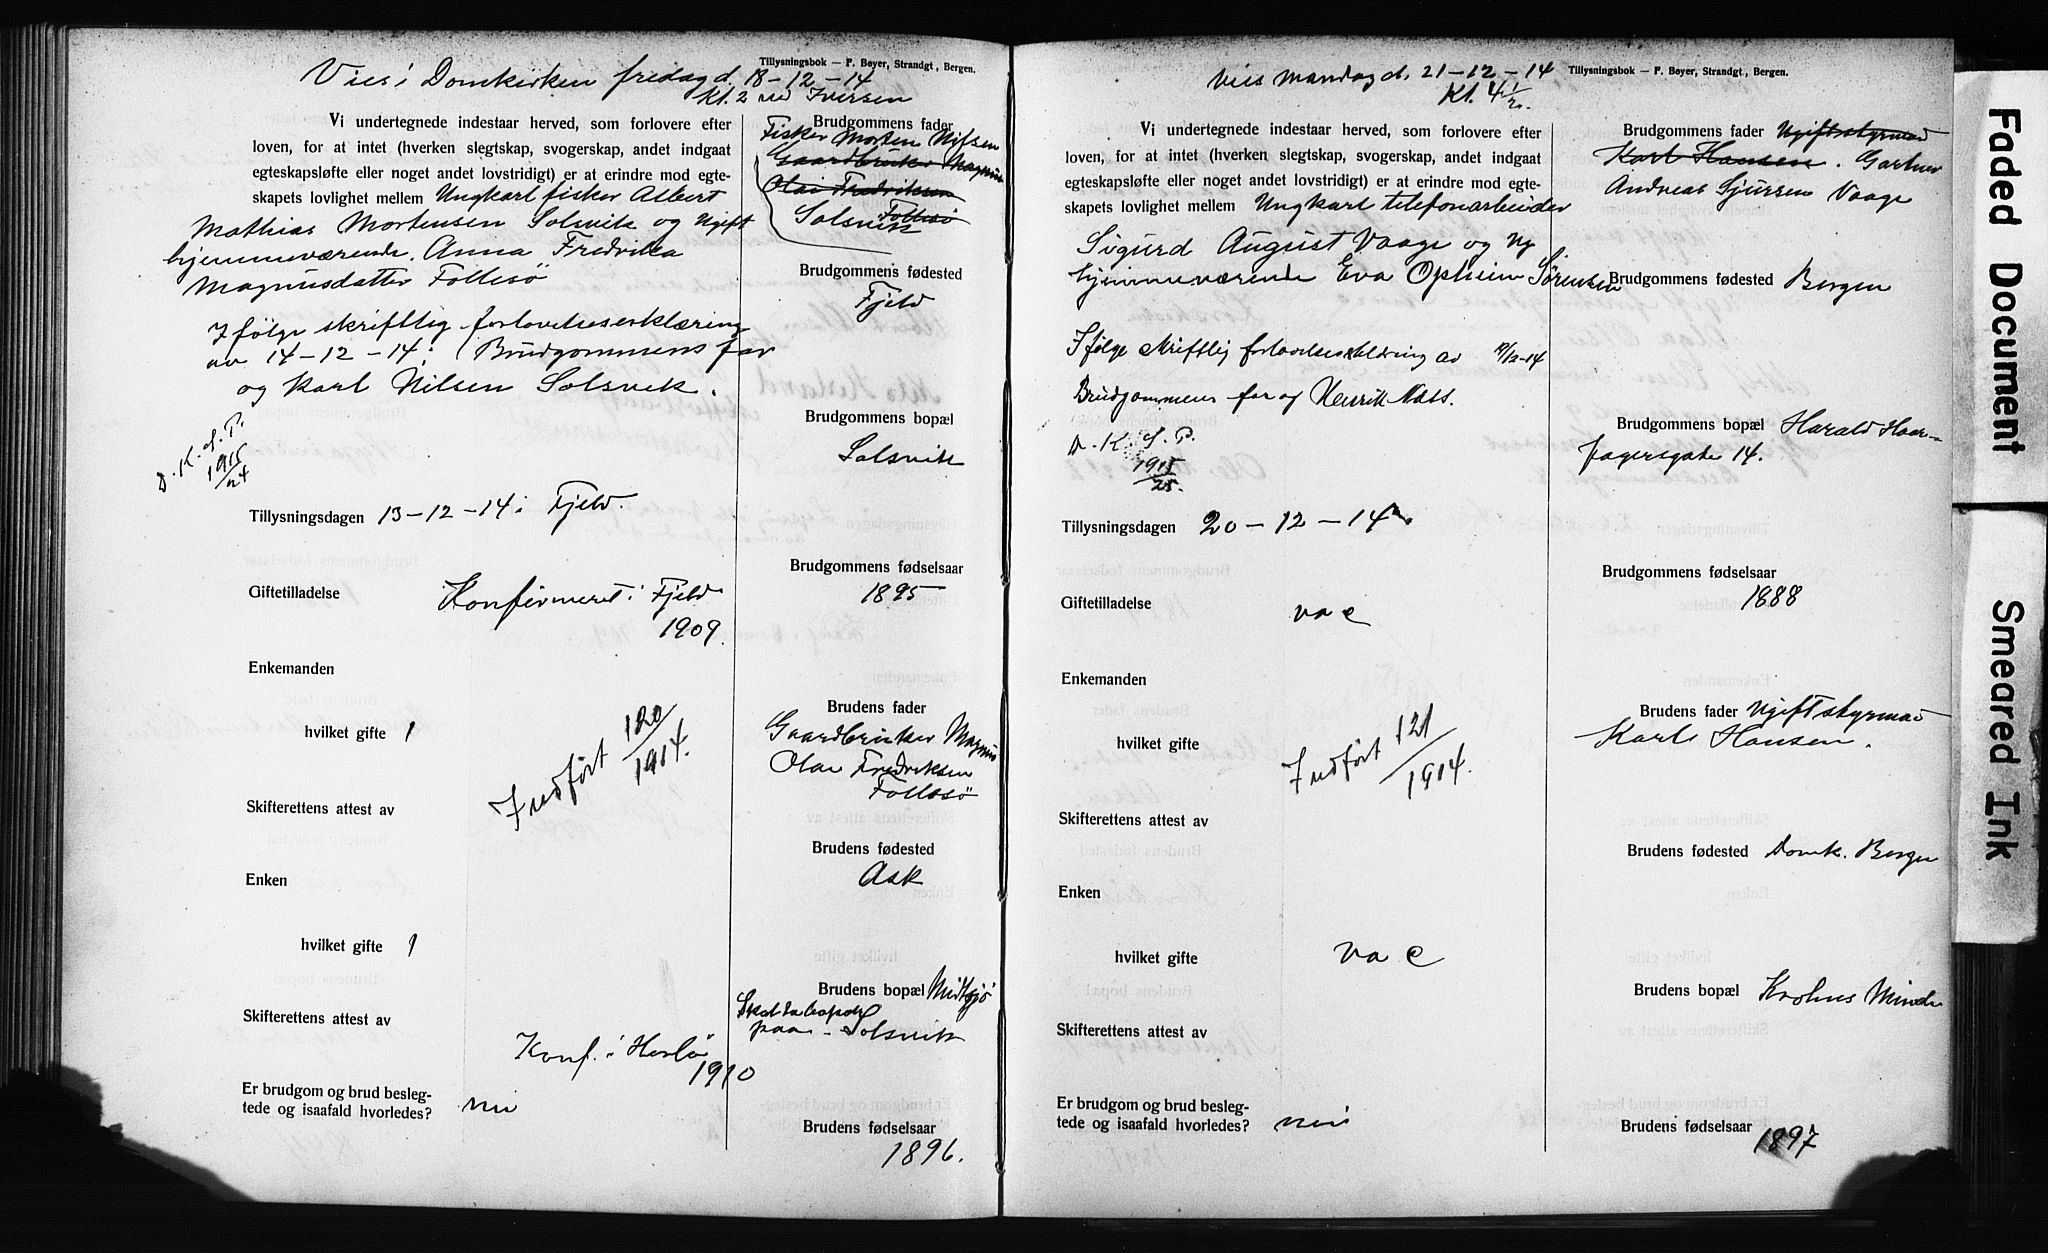 Vies i Domkirken fredag d. 18-12-14
Kl. 2 ved Iversen
Tillysningsbok — F. Beyer, Strandgt., Bergen.
Vi undertegnede indestaar herved, som forlovere efter
loven, for at intet (hverken slegtskap, svogerskap, andet indgaat
egteskapsløfte eller noget andet lovstridigt) er at erindre mod egte-
skapets lovlighet mellem Ungkarl fisker Albert
Mathias Mortensen Solsvik og Ugift
hjemmeværende Anna Fredrika
Magnusdatter Follesø
Ifølge skriftlig forlovelseserklæring
av 14-12-14: Brudgommens far
og Karl Nilsen Solsvik.
D. K. s. P.
1915/24
Tillysningsdagen 13-12-14 i Fjeld.
Giftetilladelse Konfirmeret i Fjeld
1909
Enkemanden
hvilket gifte 1
Indført 120/1914.
Skifterettens attest av
Enken
hvilket gifte 1
Skifterettens attest av
Konf. i Herlø
1910
Er brudgom og brud besleg-
tede og isaafald hvorledes? nei
Brudgommens fader
Fisker Morten Nilsen
Gaardbruker Magnus
Olai Fredriksen
Follesø
Solsvik
Brudgommens fødested
Fjeld
Brudgommens bopæl
Solsvik
Brudgommens fødselsaar
1895
Brudens fader
Gaardbruker Magnus
Olai Fredriksen
Follesø
Brudens fødested
Ask
Brudens bopæl
Skal ta bopæl
paa Solsvik
Brudens fødselsaar
1896.
Vies Mandag d. 21-12-14
Kl. 4 1/2.
Tillysningsbok — F. Beyer, Strandgt., Bergen.
Vi undertegnede indestaar herved, som forlovere efter
loven, for at intet (hverken slegtskap, svogerskap, andet indgaat
egteskapsløfte eller noget andet lovstridigt) er at erindre mod egte-
skapets lovlighet mellem Ungkarl telefonarbeider
Sigurd August Vaage og Ug
hjemmeværende Eva Opheim Sørensen
Ifølge skriftlig forlovelseserklæring av
Brudgommens far og Henrik Næss.
D. K. S. P.
1915/25.
Tillysningsdagen 20-12-14
Giftetilladelse vac
Enkemanden
hvilket gifte
Indført 121/1914.
Skifterettens attest av
Enken
hvilket gifte vac
Skifterettens attest av
Er brudgom og brud besleg-
tede og isaafald hvorledes? nei
Brudgommens fader Ugift styrmand
Karl Hansen. Gartner
Andreas Sjursen Vaage
Brudgommens fødested Bergen
Brudgommens bopæl Harald Haar-
fagersgate 14.
Brudgommens fødselsaar
1888
Brudens fader Ugift styrmand
Karl Hansen.
Brudens fødested Domk. Bergen
Brudens bopæl Krohns Minde
Brudens fødselsaar 1897
Faded Document
Smeared Ink